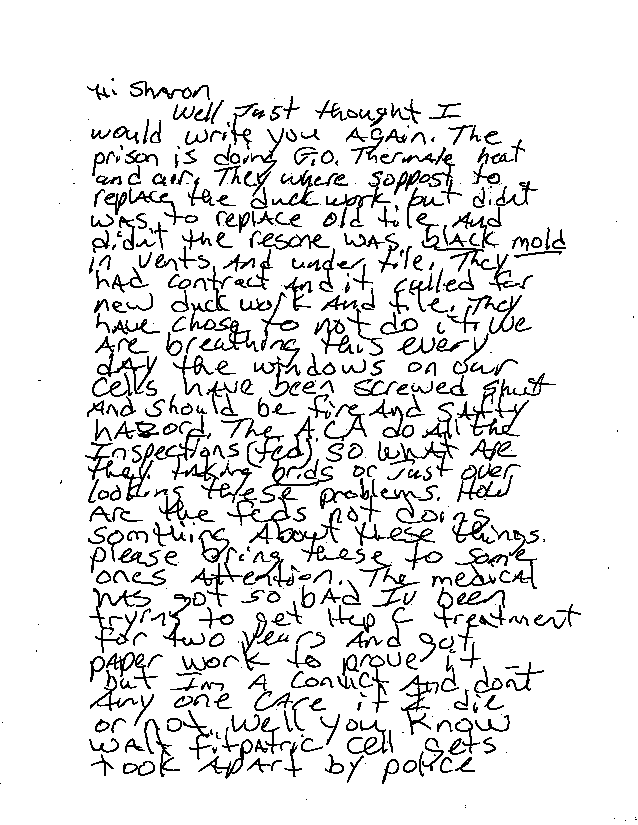 Hi Sharon
Well Just thought I
would write you AGAIN. The
prison is doing G.O. Thermale heat
and air. They where soppost to
replace the duck work, but didn't
WAS to replace old tile And
didn't the resone WAS black mold
in vents, And under tile. They
hAD contract And it called for
new duck work And tile. They
have chose to not do it. We
Are breathing this every
dAy the windows on our
Cells have been screwed shut
And should be fire And SAfity
hAzord. The A.C.A do All the
Inspections (fed) so whAt Are
they taking brids or Just over
looking these problems. How
Are the feds not doing
somthing About these things.
please bring these to some
ones Attention. The medicAl
hAs got so bAd Iv been
trying to get Hep C treatment
for two years And got
pAper work to prove it
but Im A convict And dont
Any one CAre if I die
or not. Well you Know
Walt fitpatric cell gets
took Apart by police